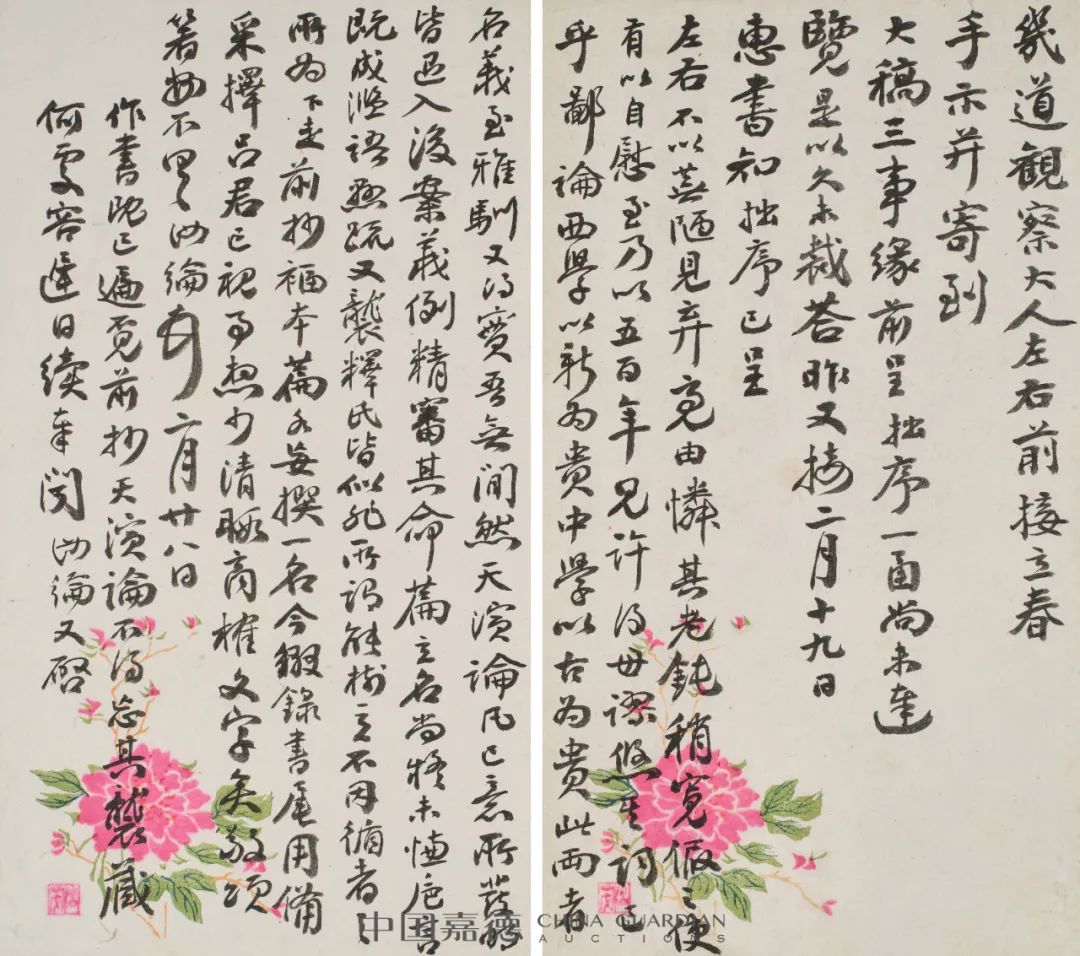 幾道觀察大人左右前接立春
手示并寄到
大稿三事緣前呈拙序一函尚未達
覽是以久未裁荅昨又接二月十九日
惠書知拙序已呈
左右不以蕪陋見弃亮由憐其老鈍稍寬假之使
有以自慰至乃以五百年見許得毋謬悠其詞已
乎鄙論西學以新為貴中學以古為貴此兩者
名義至雅馴又得實吾無間然天演論凡己意所發明
皆退入後案義例精審其命篇立名尚疑未慊卮言
既成濫語懸疏又襲釋氏皆似非所謂能樹立不因循者之
所為下走前抄福本篇各妄撰一名今綴錄書尾用備
采擇呂君已視事想少清暇商榷文字矣敬頌
箸安不具汝綸頓首二月廿八日
作書既已遍覓前抄天演論不得忘其襲藏
何處容遲日續奉聞汝綸又啓
中国嘉德 CHINA GUARDIAN
AUCTIONS